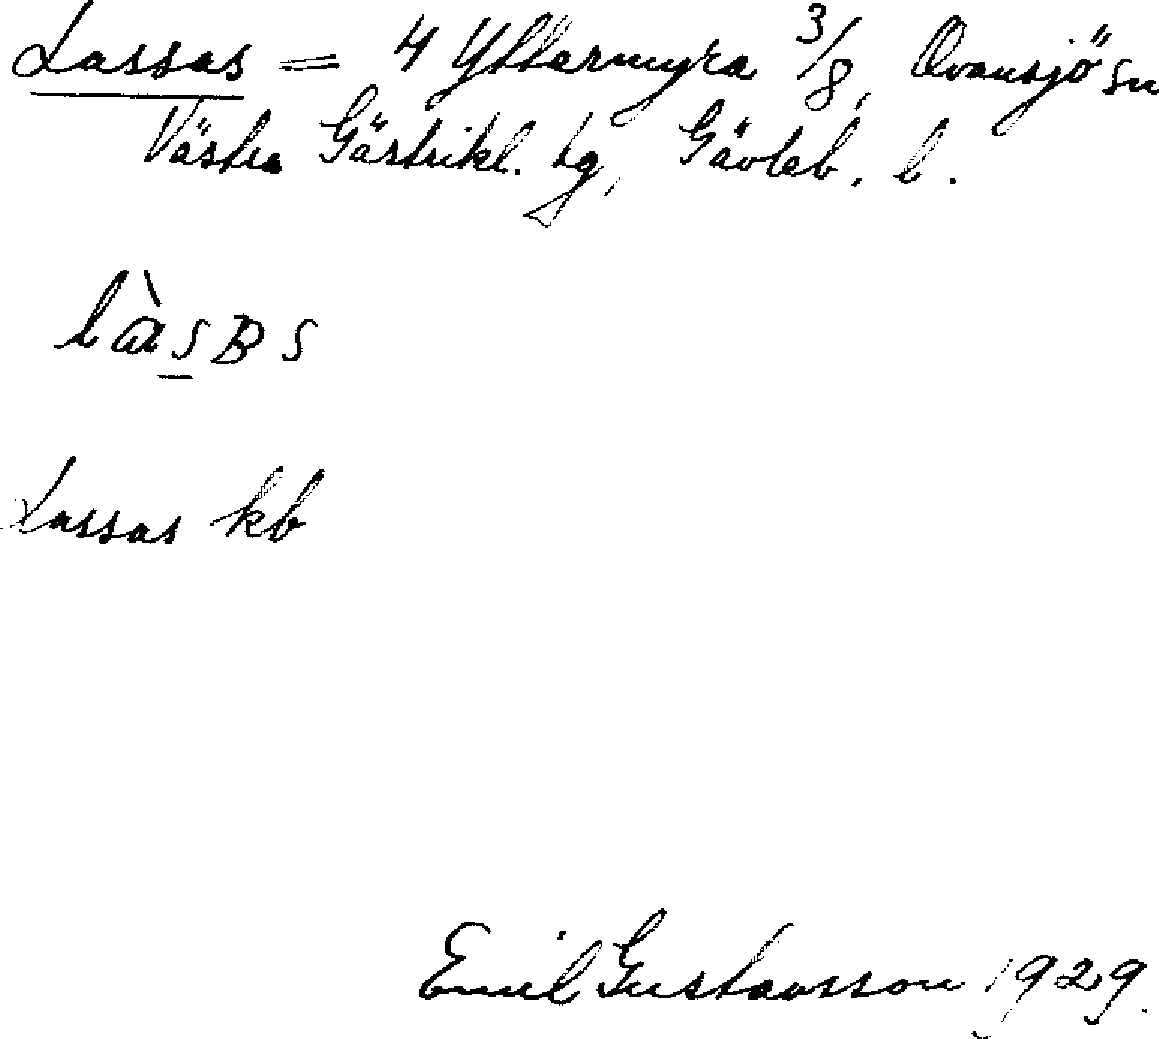 Lassas = 4 Yttermyra 3/8, Ovansjö sn
Västra Gästrikl. tg, Gävleb. l.
làsBs
Lassas kb
Emil Gustavsson 1929.